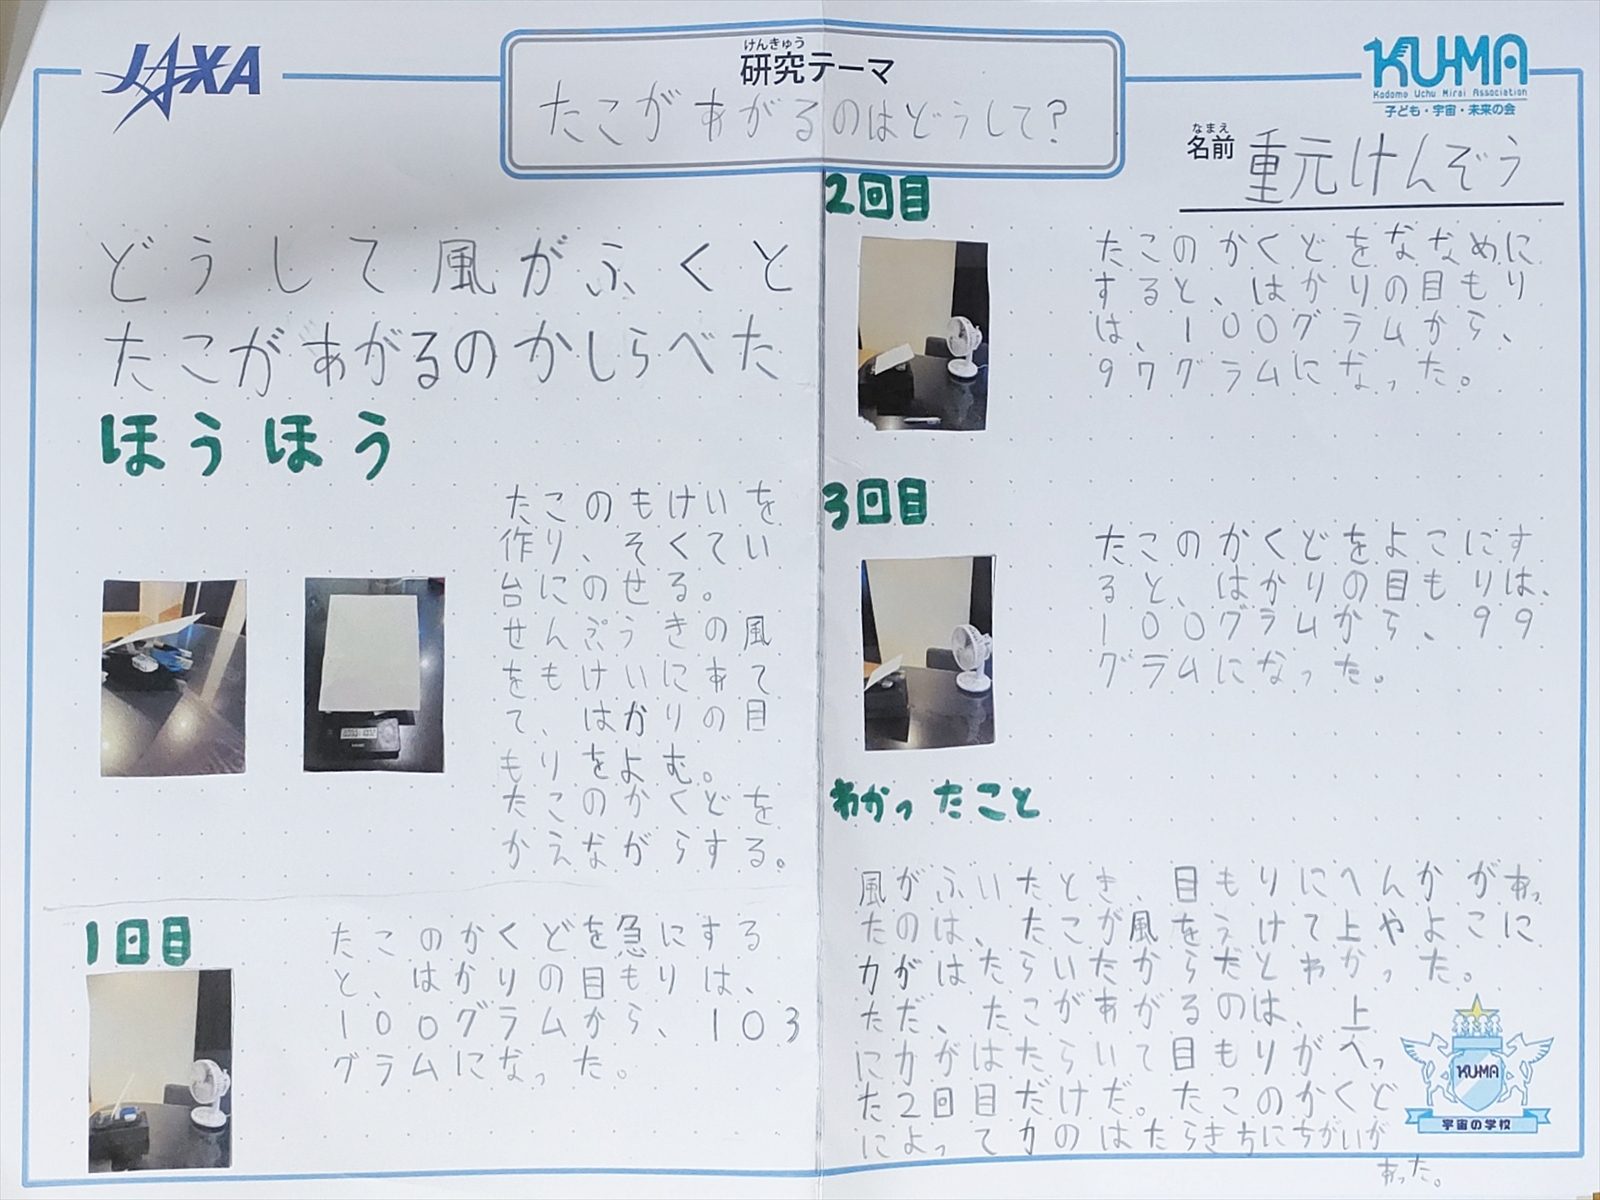 JAXA
けんきゅう
研究テーマ
たこがあがるのはどうして?
KU-MA
Kodomo Uchu Mirai Association
子ども・宇宙・未来の会
なまえ
名前
重元けんぞう
どうして風がふくと
たこがあがるのかしらべた
ほうほう
たこのもけいを
作り、そくてい
台にのせる。
せんぷうきの風
をもけいにあて
て、はかりの目
もりをよむ。
たこのかくどを
かえながらする。
1回目
たこのかくどを急にする
と、はかりの目もりは、
100グラムから、103
グラムになった。
2回目
たこのかくどをななめに
すると、はかりの目もり
は、100グラムから、
97グラムになった。
3回目
たこのかくどをよこにす
ると、はかりの目もりは、
100グラムから、99
グラムになった。
わかったこと
風がふいたとき、目もりにへんかがあっ
たのは、たこが風をうけて上やよこに
力がはたらいたからだとわかった。
ただ、たこがあがるのは、上
に力がはたらいて目もりがへっ
た2回目だけだ。たこのかくど
によって力のはたらきちにちがいが
あった。
KUMA
宇宙の学校